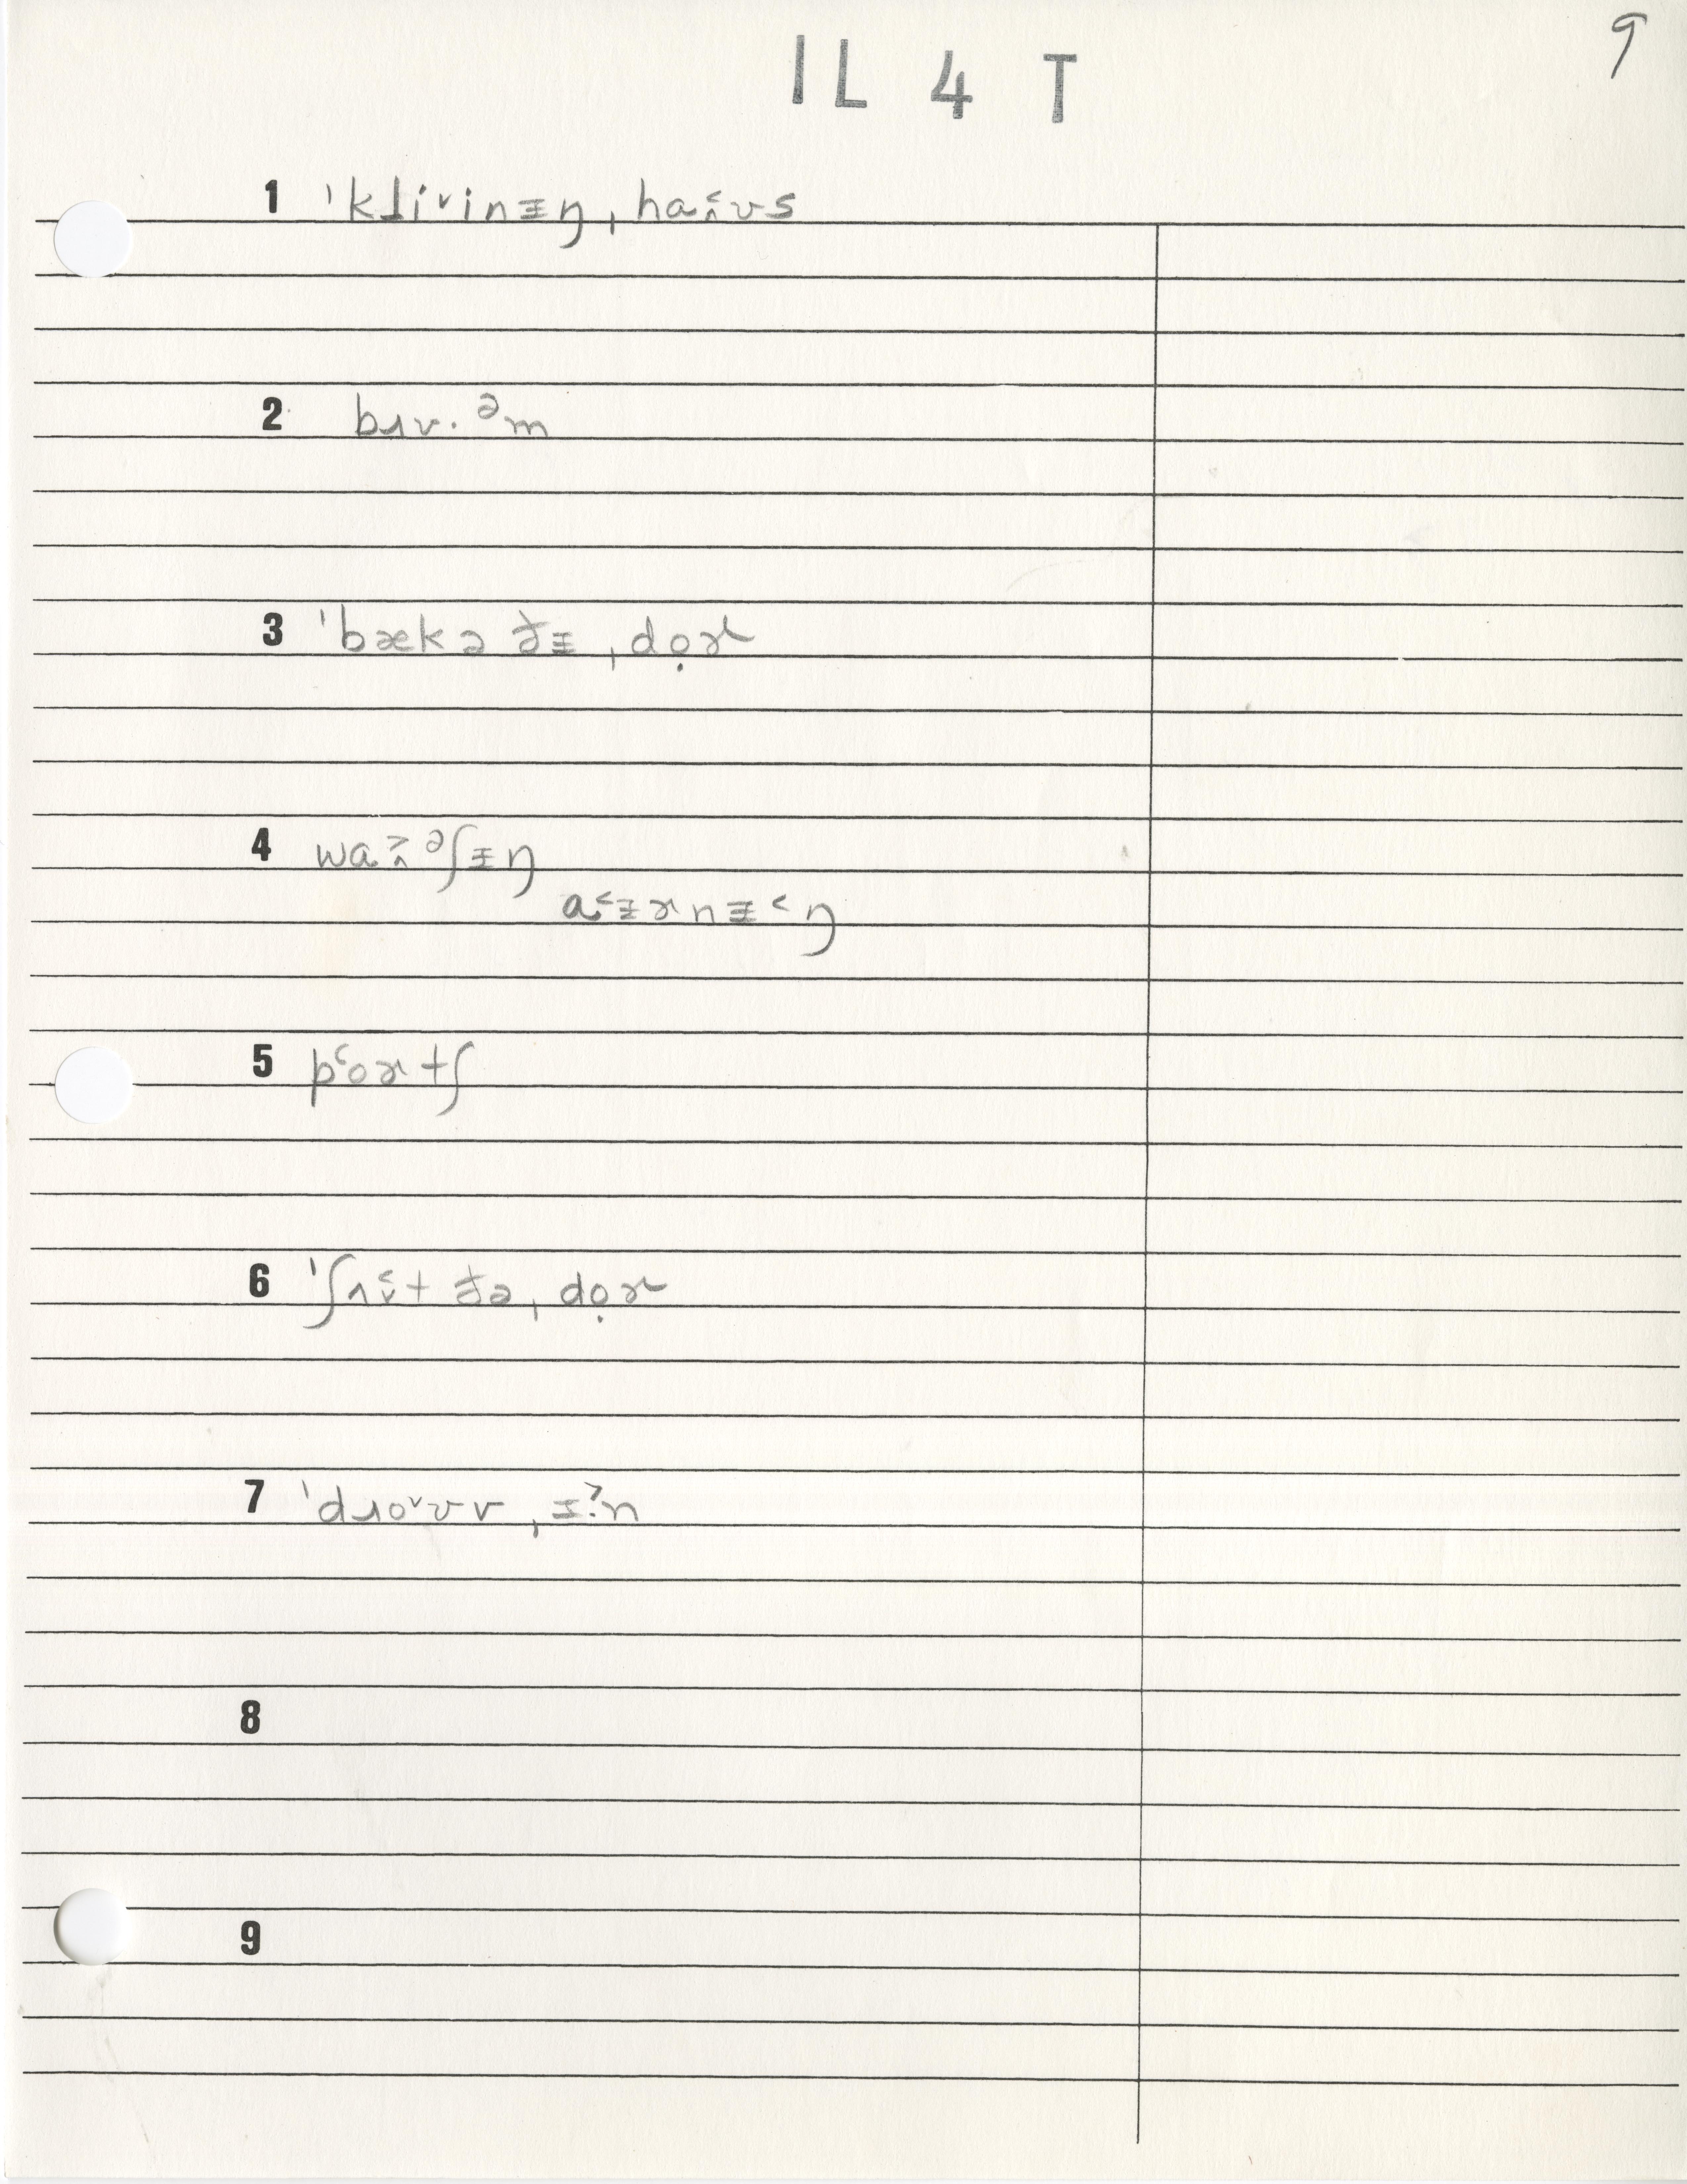 9
IL 4 T
1 ˈkɫi˅inɪ̵ŋ ˌha˂̭ʊs
2 bɹʊ· ᵊm
3 ˈbæk ə ðɪ̵ ˌdọɚ
4 wa˃̭ ᵊʃɪ̵ŋ
a˂ɪ̵ɚnɪ̵˂ŋ
5 p˂oɚtʃ
6 ˈʃʌ˂̬t ðə ˌdọɚ
7 ˈdɹo˅ʊv ˌɪ̵ˀn
8
9